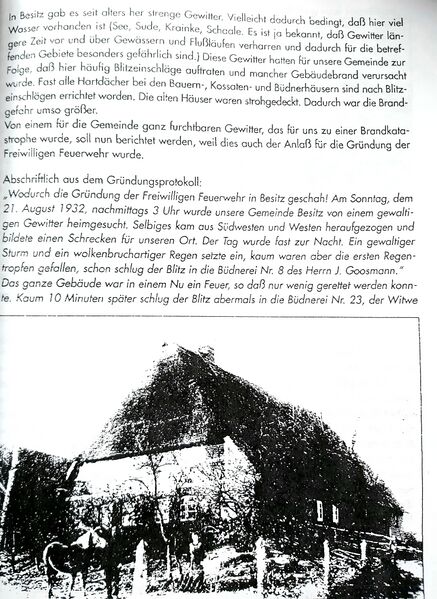 In Besitz gab es seit alters her strenge Gewitter. Vielleicht dadurch bedingt, daß hier viel
Wasser vorhanden ist (See, Sude, Krainke, Schaale. Es ist ja bekannt, daß Gewitter län-
gere Zeit vor und über Gewässern und Flußläufen verharren und dadurch für die betref-
fenden Gebiete besonders gefährlich sind.) Diese Gewitter hatten für unsere Gemeinde zur
Folge, daß hier häufig Blitzeinschläge auftraten und mancher Gebäudebrand verursacht
wurde. Fast alle Hartdächer bei den Bauern-, Kossaten- und Büdnerhäusern sind nach Blitz-
einschlägen errichtet worden. Die alten Häuser waren strohgedeckt. Dadurch war die Brand-
gefahr umso größer.
Von einem für die Gemeinde ganz furchtbaren Gewitter, das für uns zu einer Brandkata-
strophe wurde, soll nun berichtet werden, weil dies auch der Anlaß für die Gründung der
Freiwilligen Feuerwehr wurde.
Abschriftlich aus dem Gründungsprotokoll:
„Wodurch die Gründung der Freiwilligen Feuerwehr in Besitz geschah! Am Sonntag, dem
21. August 1932, nachmittags 3 Uhr wurde unsere Gemeinde Besitz von einem gewalti-
gen Gewitter heimgesucht. Selbiges kam aus Südwesten und Westen heraufgezogen und
bildete einen Schrecken für unseren Ort. Der Tag wurde fast zur Nacht. Ein gewaltiger
Sturm und ein wolkenbruchartiger Regen setzte ein, kaum waren aber die ersten Regen-
tropfen gefallen, schon schlug der Blitz in die Büdnerei Nr. 8 des Herrn J. Goosmann.“
Das ganze Gebäude war in einem Nu ein Feuer, so daß nur wenig gerettet werden konn-
te. Kaum 10 Minuten später schlug der Blitz abermals in die Büdnerei Nr. 23, der Witwe